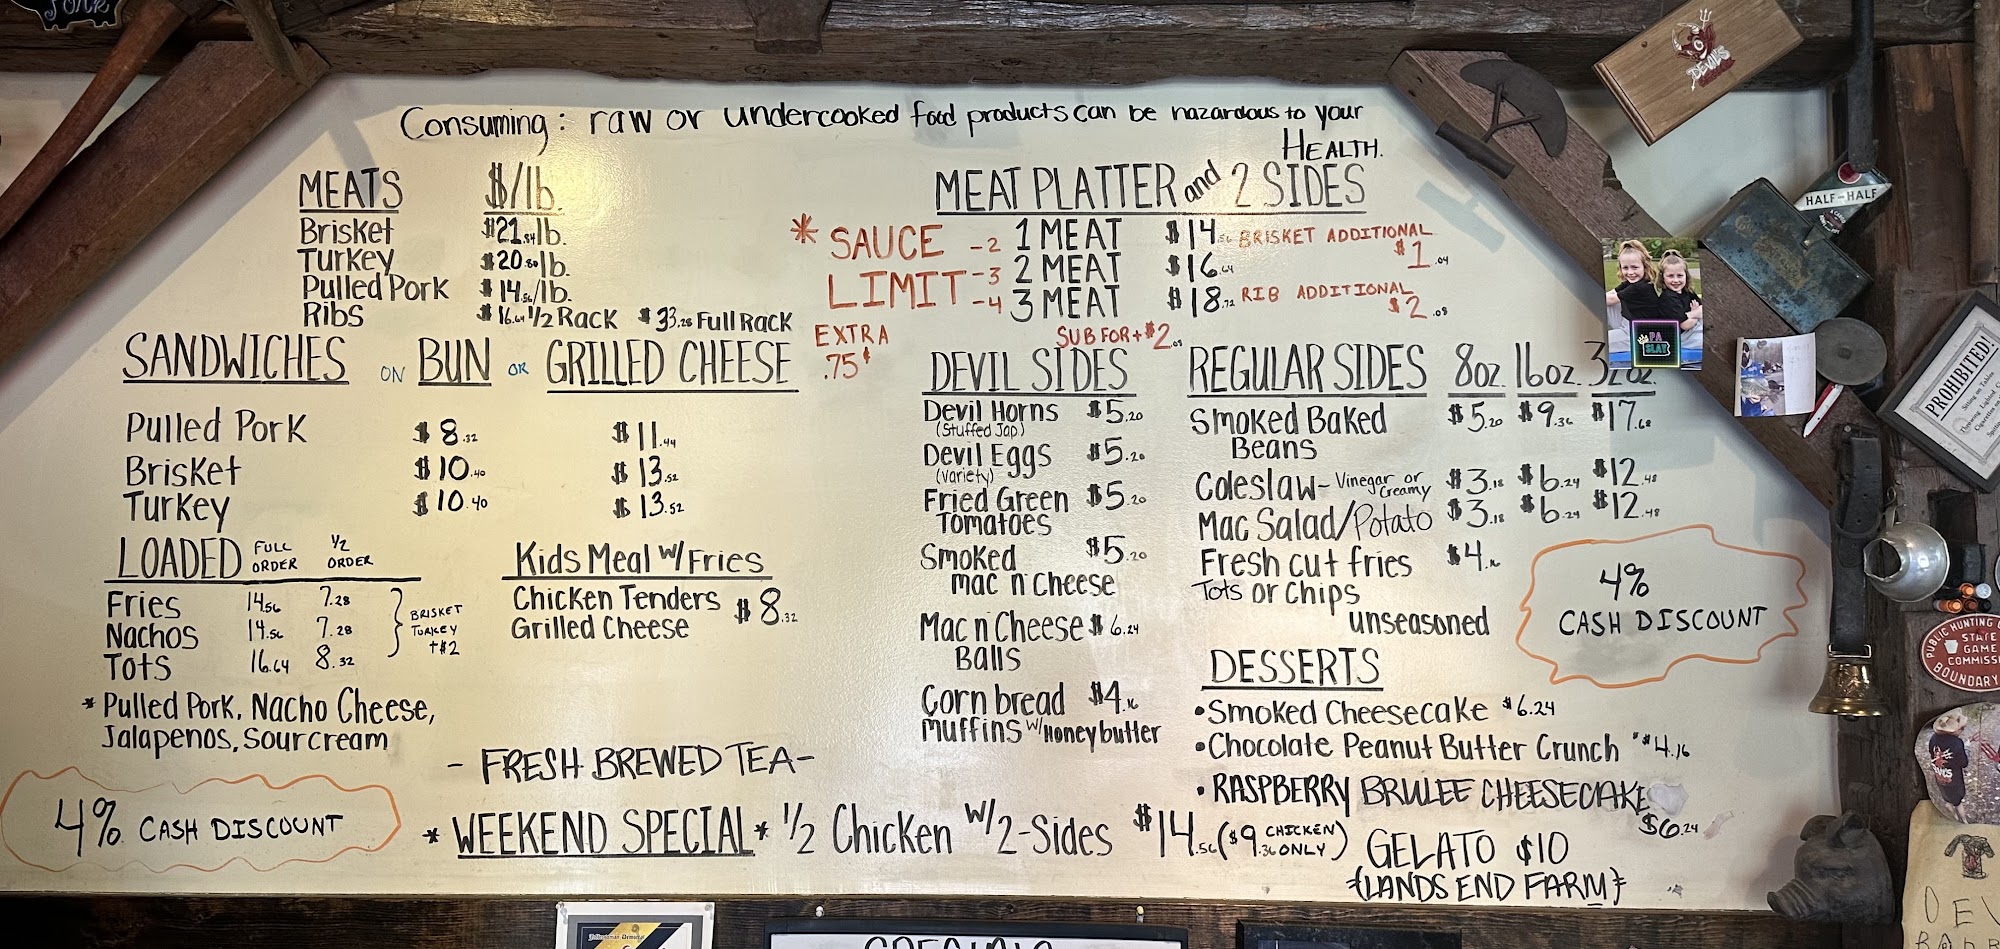 Pork
Consuming: raw or undercooked food products can be hazardous to your
HEALTH.
MEATS $/lb.
Brisket $21.84lb.
Turkey $20.80lb.
Pulled Pork $14.56/lb.
Ribs $16.64 1/2 Rack $33.28 Full Rack
MEAT PLATTER and 2 SIDES
* SAUCE LIMIT
-2 1 MEAT $14.56 BRISKET ADDITIONAL $1.04
-3 2 MEAT $16.64
-4 3 MEAT $18.72 RIB ADDITIONAL $2.08
EXTRA .75¢
SUB FOR + $2.08
SANDWICHES ON BUN OR GRILLED CHEESE
Pulled Pork $8.32 $11.44
Brisket $10.40 $13.52
Turkey $10.40 $13.52
LOADED FULL ORDER 1/2 ORDER
Fries 14.56 7.28
Nachos 14.56 7.28
Tots 16.64 8.32
BRISKET
TURKEY
+$2
*Pulled Pork, Nacho Cheese,
Jalapenos, Sour cream
Kids Meal w/Fries
Chicken Tenders
Grilled Cheese $8.32
DEVIL SIDES
Devil Horns $5.20
(Stuffed Jap.)
Devil Eggs $5.20
(variety)
Fried Green $5.20
Tomatoes
Smoked $5.20
mac n' Cheese
Mac n' Cheese $6.24
Balls
Corn bread $4.16
muffins w/Honey butter
REGULAR SIDES 8oz. 16oz. 32oz.
Smoked Baked $5.20 $9.36 $17.68
Beans
Coleslaw- Vinegar or Creamy $3.18 $6.24 $12.48
Mac Salad/Potato $3.18 $6.24 $12.48
Fresh cut fries $4.16
Tots or Chips
unseasoned
4%
CASH DISCOUNT
DESSERTS
•Smoked Cheesecake $6.24
•Chocolate Peanut Butter Crunch $4.16
•RASPBERRY BRULEE CHEESECAKE
$6.24
GELATO $10
{LANDS END FARM}
- FRESH BREWED TEA-
* WEEKEND SPECIAL* 1/2 Chicken w/2-Sides $14.56 ($9.36 CHICKEN ONLY)
4% CASH DISCOUNT
DEVILS
HALF-AND-HALF
PA
SLAY
PROHIBITED!
PUBLIC HUNTING
STATE
GAME
COMMISS
BOUNDARY
SPECIALS